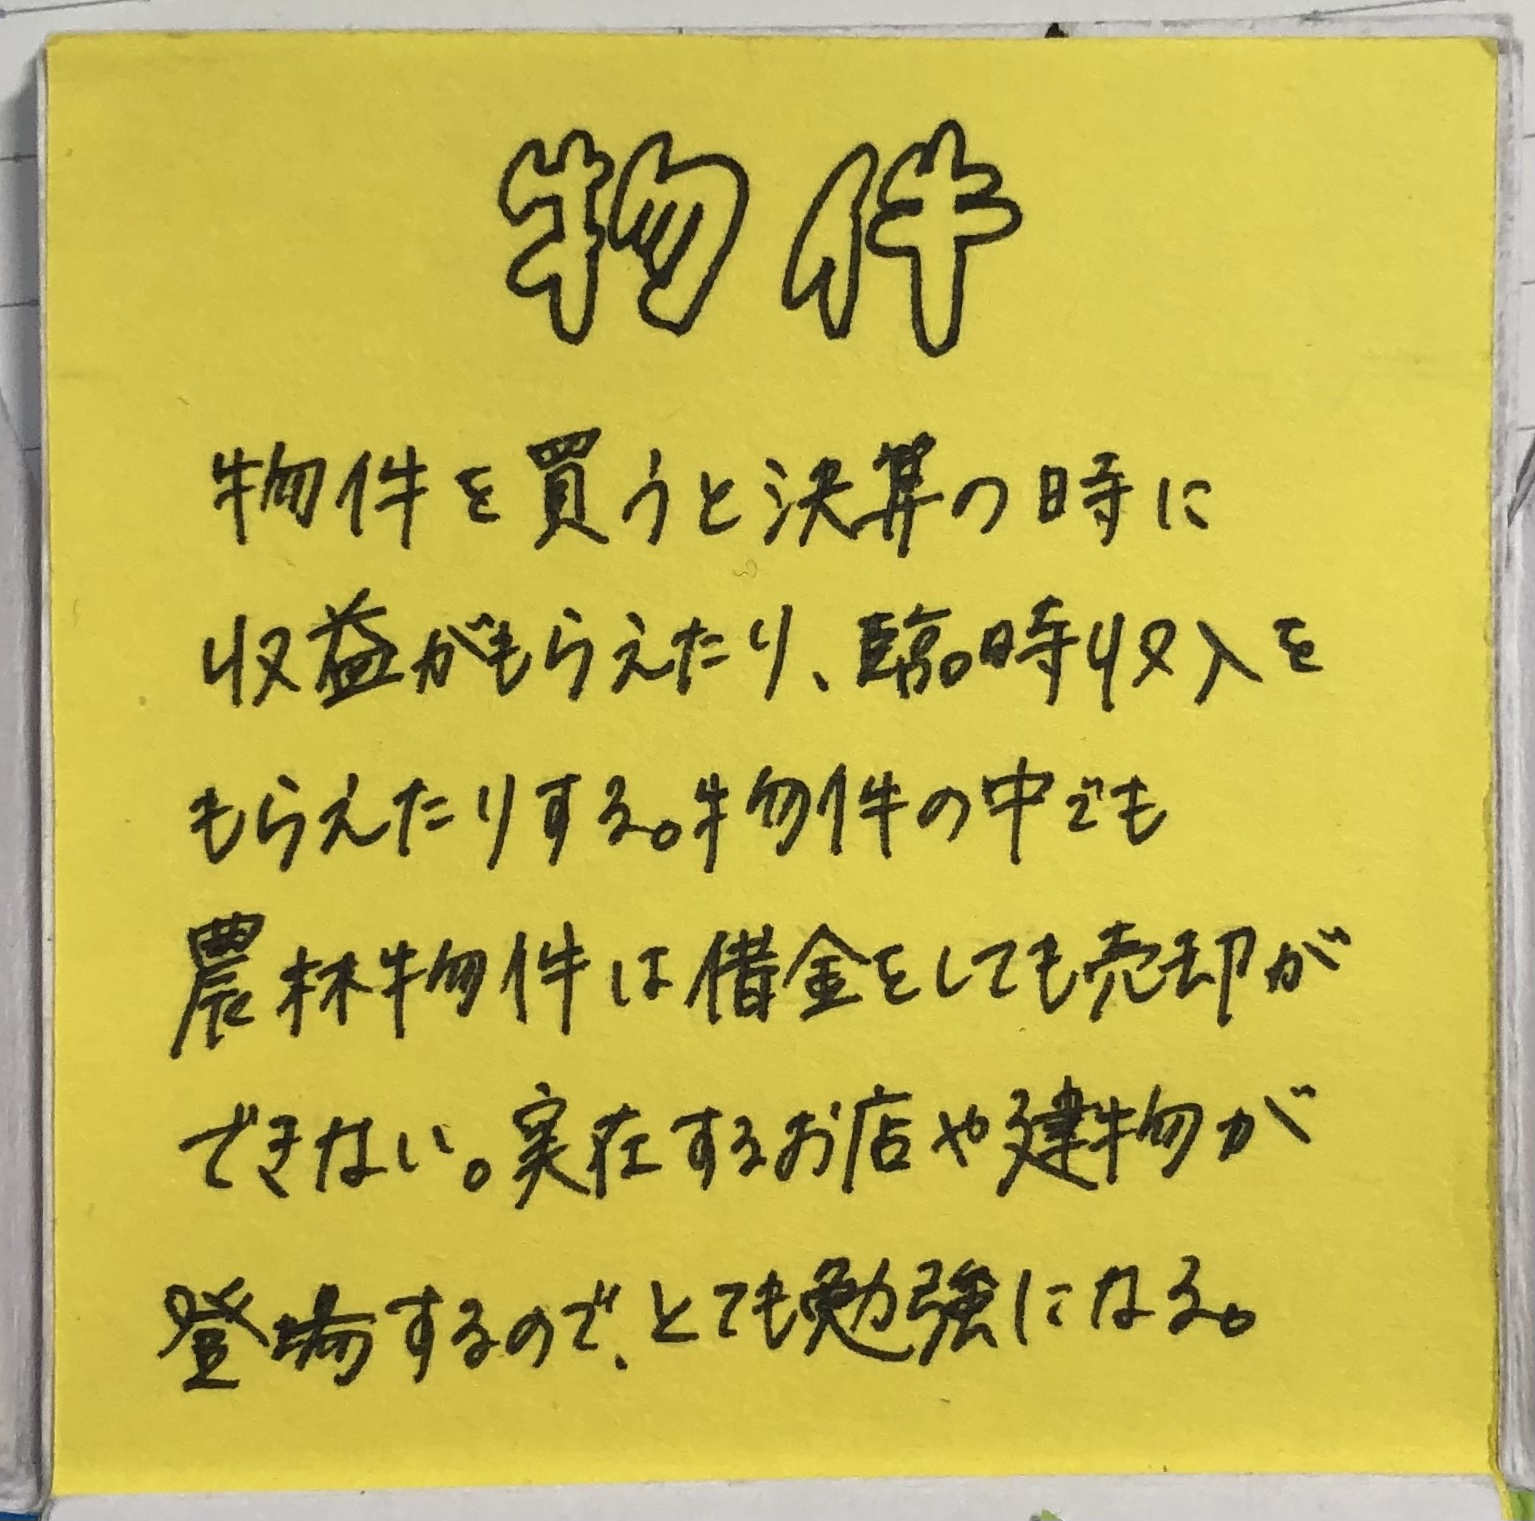 物件
物件を買うと決算の時に
収益がもらえたり、臨時収入を
もらえたりする。物件の中でも
農林物件は借金をしても売却が
できない。実在するお店や建物が
登場するので、とても勉強になる。